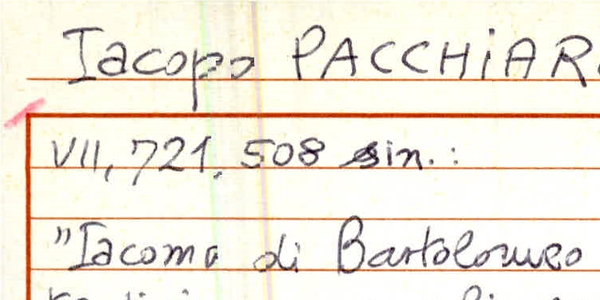 Iacopo PACCHiAR
VII, 721, 508 sin.:
"Iacomo di Bartolomeo